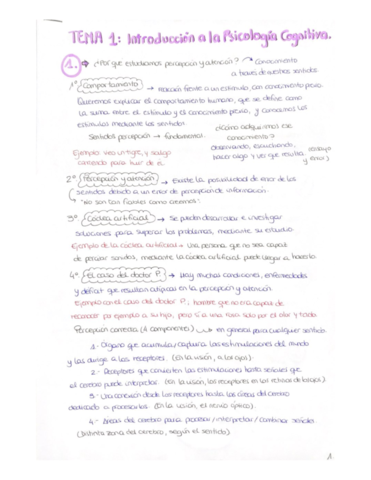 TEMA 1: Introducción a la Psicología Cognitiva.
1. → ¿Por qué estudiamos percepción y atención? → Conocimiento
a través de nuestros sentidos
1º Comportamiento → reacción frente a un estímulo, con conocimiento previo.
Queremos explicar el comportamiento humano, que se define como
la suma entre el estímulo y el conocimiento previo, y conocemos los
estímulos mediante los sentidos
Sentidos percepción → fundamental. ¿Cómo adquirimos ese
conocimiento?
Ejemplo: veo un tigre, y salgo observando, escuchando, (ensayo
corriendo para huir de él. hacer algo y ver que resulta y error)
2º Percepción y atención → Existe la posibilidad de error de los
sentidos debido a un error de percepción de información.
"No son tan fiables como creemos".
3º Cóclea artificial → Se pueden desarrollar e investigar
soluciones para superar los problemas, mediante su estudio
Ejemplo de la cóclea artificial → Una persona que no sea capaz
de percibir sonidos, mediante la cóclea artificial puede llegar a hacerlo
4º El caso del doctor P. → Hay muchas condiciones, enfermedades
y déficit que resultan atípicas en la percepción y atención
Ejemplo con el caso del doctor P, hombre que no era capaz de
reconocer por ejemplo a su hijo, pero sí a una rosa solo por el olor y tacto.
Percepción correcta (4 componentes) → en general para cualquier sentido
1- Órgano que acumula/captura las estimulaciones del mundo
y las dirige a los receptores. (En la visión, a los ojos).
2- Receptores que convierten las estimulaciones hasta señales que
el cerebro puede interpretar. (En la visión, los receptores en las retinas de los ojos).
3- Una conexión desde los receptores hasta las áreas del cerebro
dedicado a procesarlos (En la visión, el nervio óptico).
4- Áreas del cerebro para procesar/interpretar/combinar señales
(Distinta zona del cerebro, según el sentido).
1